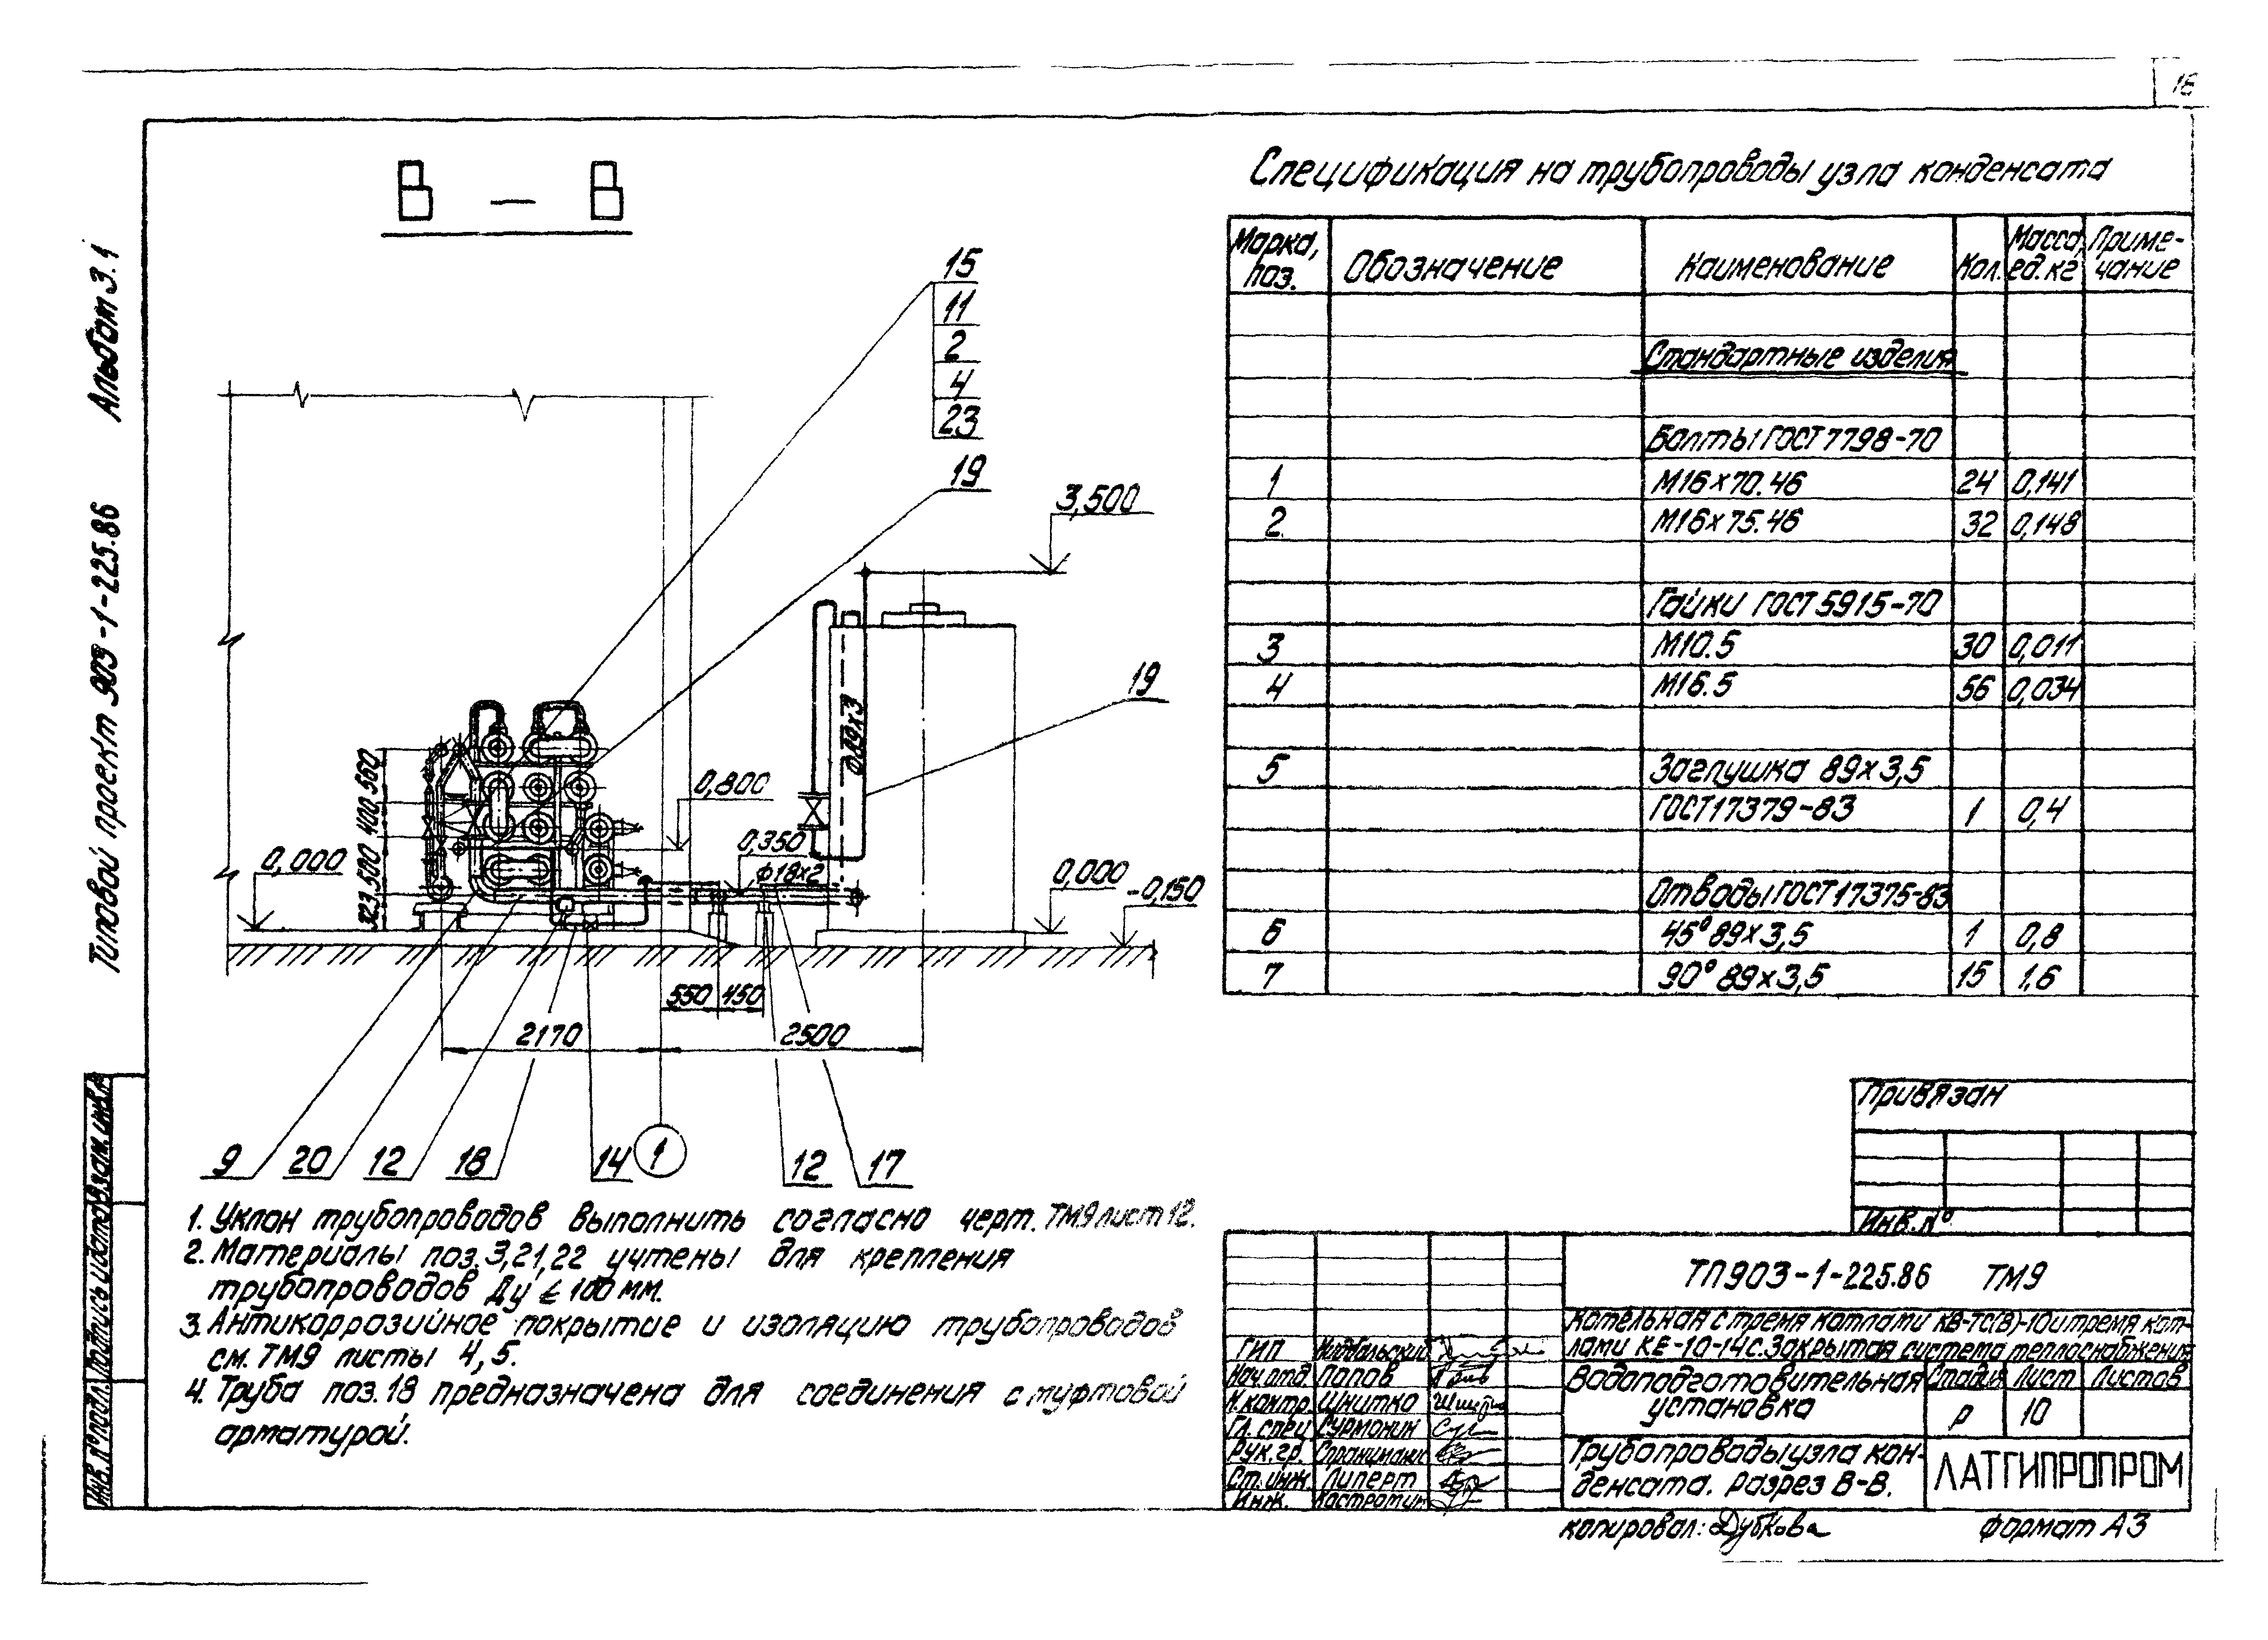 16
Альбом 3.1
Типовой проект 903-1-225.86
В - В
15
11
2
4
23
19
3,500
19
Ф 19х3
0,800
0,350
ф18х2
0,000
0,000
-0,150
560
400
500
323
550
450
2170
2500
9
20
12
18
14
1
12
17
1. Уклон трубопроводов выполнить согласно черт. ТМ9 лист 12.
2. Материалы поз. 3,21,22 учтены для крепления
трубопроводов Ду ≤ 100 мм.
3. Антикоррозийное покрытие и изоляцию трубопроводов
см. ТМ9 листы 4,5.
4. Труба поз. 18 предназначена для соединения с муфтовой
арматурой.
Спецификация на трубопроводы узла конденсата
Марка, поз. Обозначение Наименование Кол. Масса, ед. кг Приме-чание
Стандартные изделия
Болты ГОСТ 7798-70
1 М16х70.46 24 0,141
2 М16х75.46 32 0,148
Гайки ГОСТ 5915-70
3 М10.5 30 0,011
4 М16.5 56 0,034
5 Заглушка 89х3,5
ГОСТ 17379-83 1 0,4
Отводы ГОСТ 17375-83
6 45° 89х3,5 1 0,8
7 90° 89х3,5 15 1,6
Привязан
Инв. №
ТП 903-1-225.86 ТМ9
Котельная с тремя котлами КВ-ТС(В)-10 и тремя кот-
лами КЕ-10-14с. Закрытая система теплоснабжения
ГИП
Нач. отд. Попов
Н. контр. Шнитко
Гл. спец. Сурмонин
Рук. гр.
Ст. инж. Липерт
Инж.
Водоподготовительная
установка
Стадия Лист Листов
Р 10
Трубопроводы узла кон-
денсата. Разрез В-В.
ЛАТГИПРОПРОМ
копировал: Дубкова
формат А3
Инв. № подл. Подпись и дата Взам. инв. №